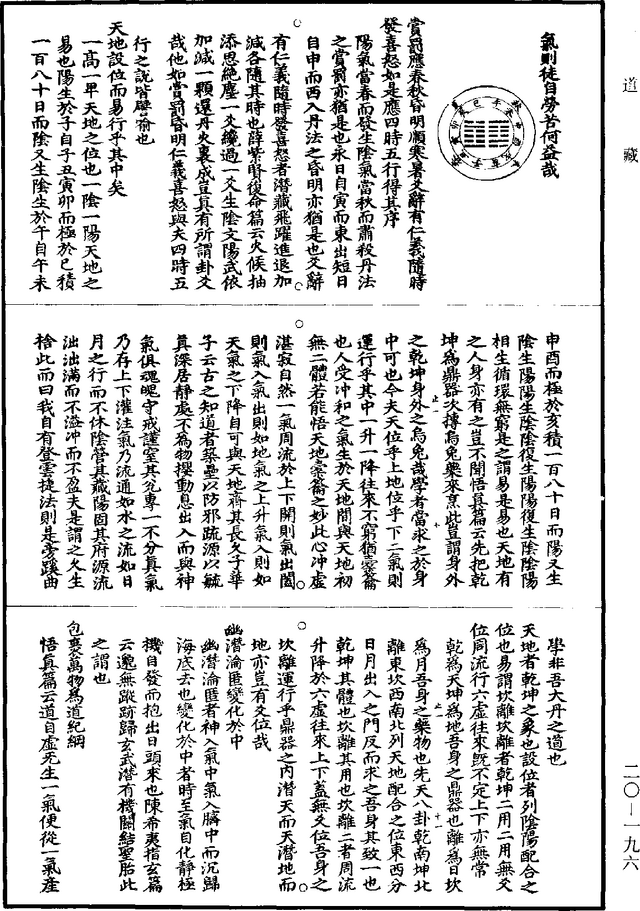 道藏
二〇—一九六
氣則徒自勞苦何益哉
賞罰應春秋昏明順寒暑爻辭有仁義隨時
發喜怒如是應四時五行得其序
陽氣當春而發生陰氣當秋而肅殺丹法
之賞罰亦猶是也永日自寅而東出短日
自申而西入丹法之昏明亦猶是也爻辭
有仁義隨時發喜怒者潛藏飛躍進退加
減各隨其時也薛紫賢復命篇云火候抽
添思絕塵一爻纔過一爻生陰文陽武依
加減一顆還丹火裏成豈真有所謂卦爻
哉他如賞罰昏明仁義喜怒與夫四時五
行之說皆譬喻也
天地設位而易行乎其中矣
一高一卑天地之位也一陰一陽天地之
易也陽生於子自子丑寅卯而極於巳積
一百八十日而陰又生陰生於午自午未
申酉而極於亥積一百八十日而陽又生
陰生陽陽生陰陰復生陽陽復生陰陰陽
相生循環無窮是之謂易是易也天地有
之人身亦有之豈不聞悟真篇云先把乾
坤為鼎器次摶烏兔藥來烹此豈謂身外
之乾坤身外之烏兔哉學者當求之於身
中可也今夫天位乎上地位乎下二氣則
運行乎其中一升一降往來不窮猶橐籥
也人受沖和之氣生於天地間與天地初
無二體若能悟天地橐籥之妙此心沖虛
湛寂自然一氣周流於上下開則氣出闔
則氣入氣出則如地氣之上升氣入則如
天氣之下降自可與天地齊其長久子華
子云古之知道者築壘以防邪疏源以毓
真深居靜處不為物攖動息出入而與神
氣俱魂魄守戒謹窒其兌專一不分真氣
乃存上下灌注氣乃流通如水之流如日
月之行而不休陰營其藏陽固其府源流
泏泏滿而不溢沖而不盈夫是謂之久生
捨此而曰我自有登雲捷法則是旁蹊曲
學非吾大丹之道也
天地者乾坤之象也設位者列陰陽配合之
位也易謂坎離坎離者乾坤二用二用無爻
位周流行六虛往來既不定上下亦無常
乾為天坤為地吾身之鼎器也離為日坎
為月吾身之藥物也先天八卦乾南坤北
離東坎西南北列天地配合之位東西分
日月出入之門反而求之吾身其致一也
乾坤其體也坎離其用也坎離二者周流
升降於六虛往來上下蓋無爻位吾身之
坎離運行乎鼎器之內潛天而天潛地而
地亦豈有爻位哉
幽潛淪匿變化於中
幽潛淪匿者神入氣中氣入臍中而沉歸
海底去也變化於中者時至氣自化靜極
機自發而抱出日頭來也陳希夷指玄篇
云邈無蹤跡歸玄武潛有機關結聖胎此
之謂也
包裹萬物為道紀綱
悟真篇云道自虛无生一氣便從一氣產